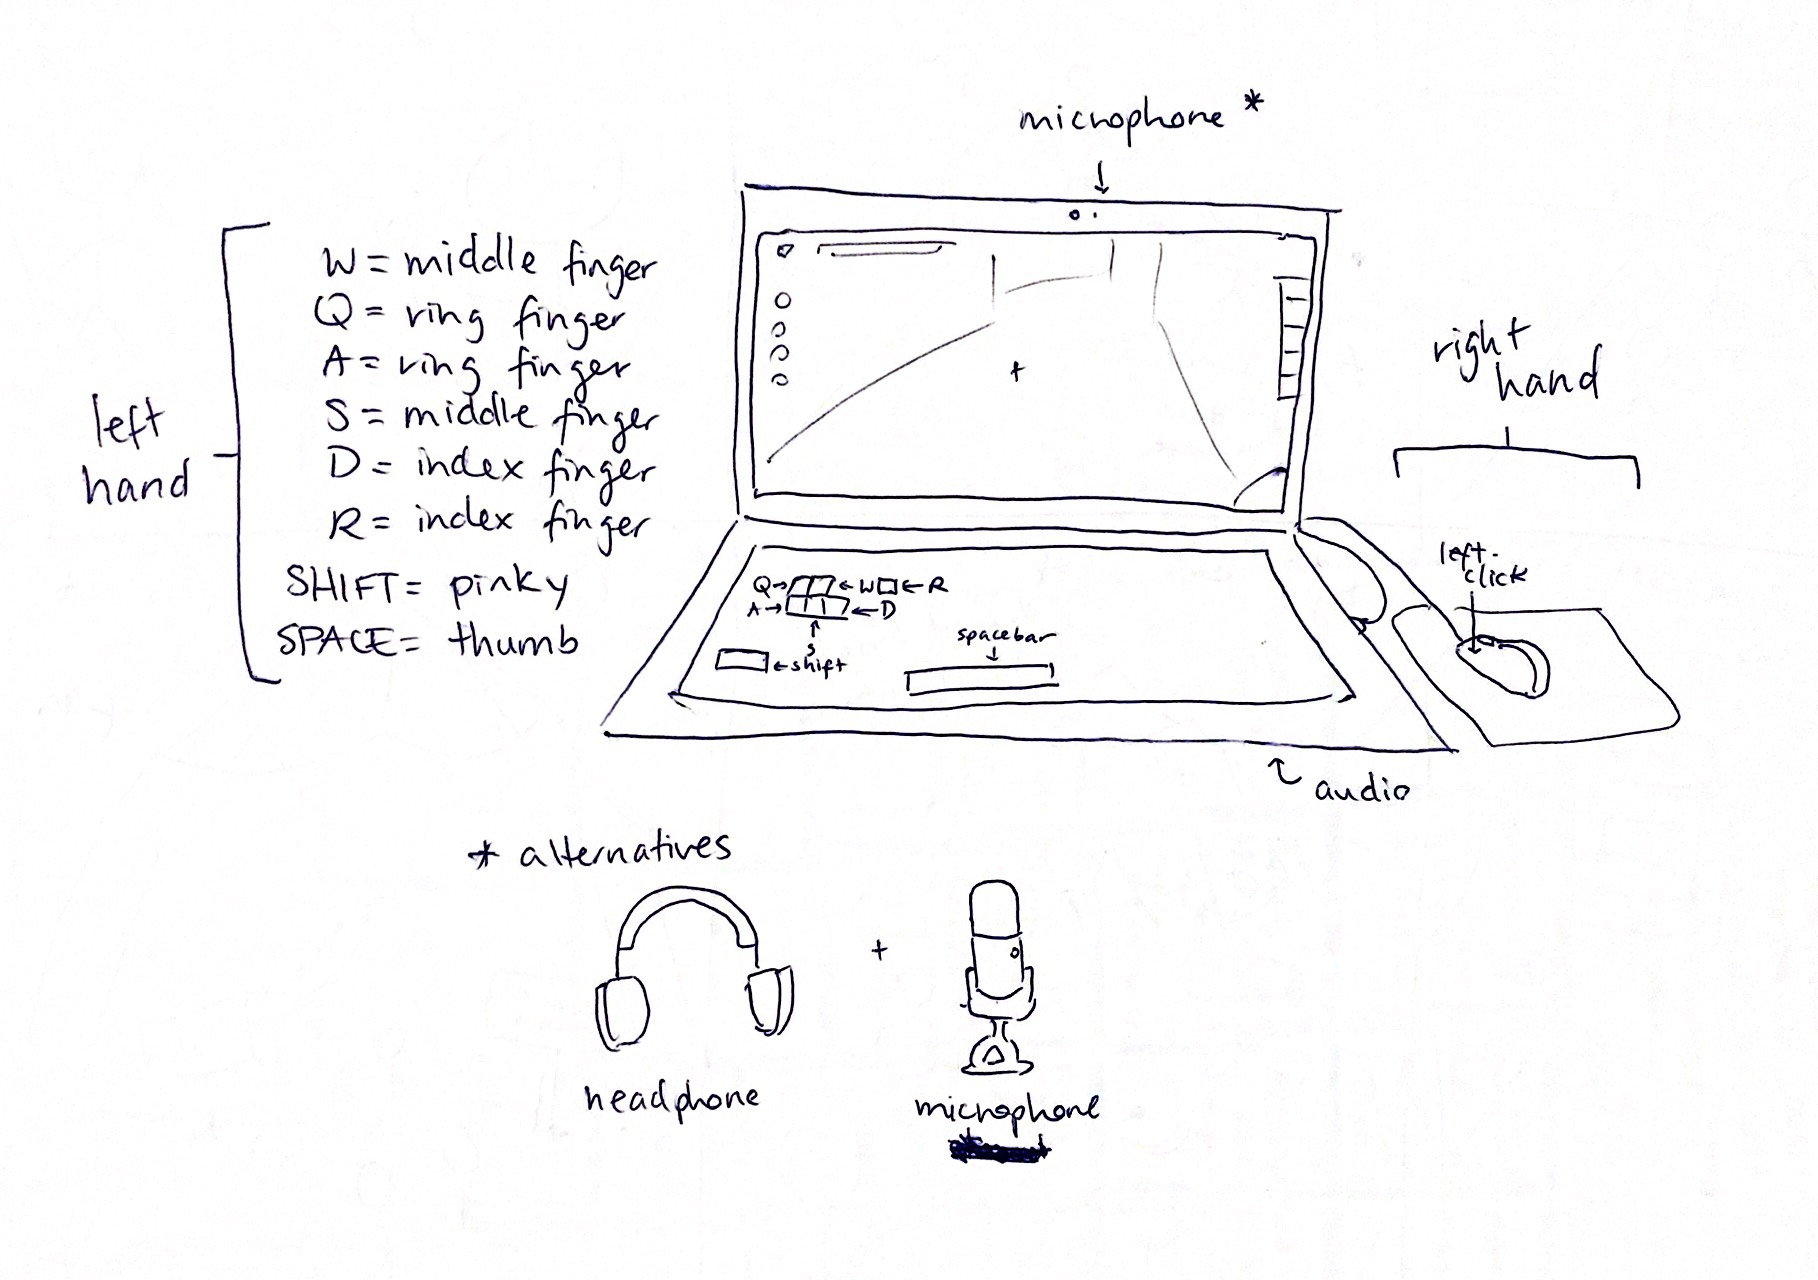 microphone *
left
hand
W = middle finger
Q = ring finger
A = ring finger
S = middle finger
D = index finger
R = index finger
SHIFT = pinky
SPACE = thumb
right
hand
left-
click
Q W R
A D
S
shift
spacebar
audio
* alternatives
+
headphone
microphone